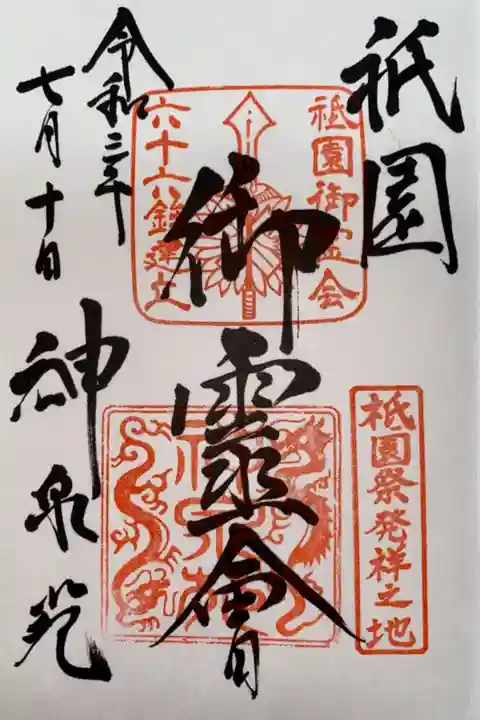 祇園
御靈會
令和三年
七月十日
神泉苑
祇園御霊会
六十六鉾建立
祇園祭発祥之地